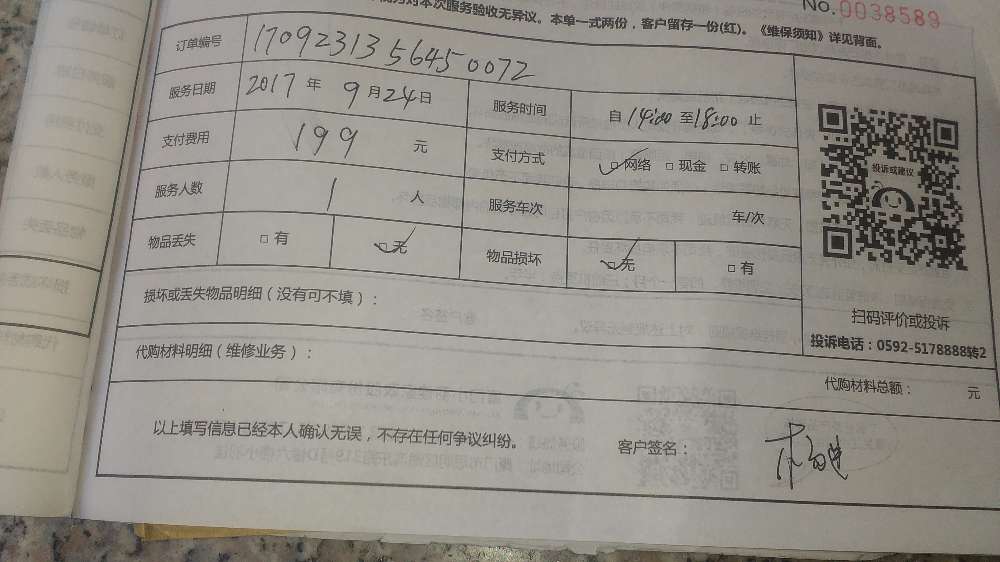 No.0038589
对本次服务验收无异议。本单一式两份，客户留存一份(红)。《维保须知》详见背面。
订单编号 170923135645 0072
服务日期 2017 年 9 月 24 日 服务时间 自 14:00 至 18:00 止
支付费用 199 元 支付方式 ☑网络 □现金 □转账
服务人数 1 人 服务车次 车/次
物品丢失 □有 ☑无 物品损坏 ☑无 □有
投诉或建议
扫码评价或投诉
投诉电话：0592-5178888转2
损坏或丢失物品明细（没有可不填）：
代购材料明细（维修业务）：
代购材料总额： 元
以上填写信息已经本人确认无误，不存在任何争议纠纷。 客户签名：